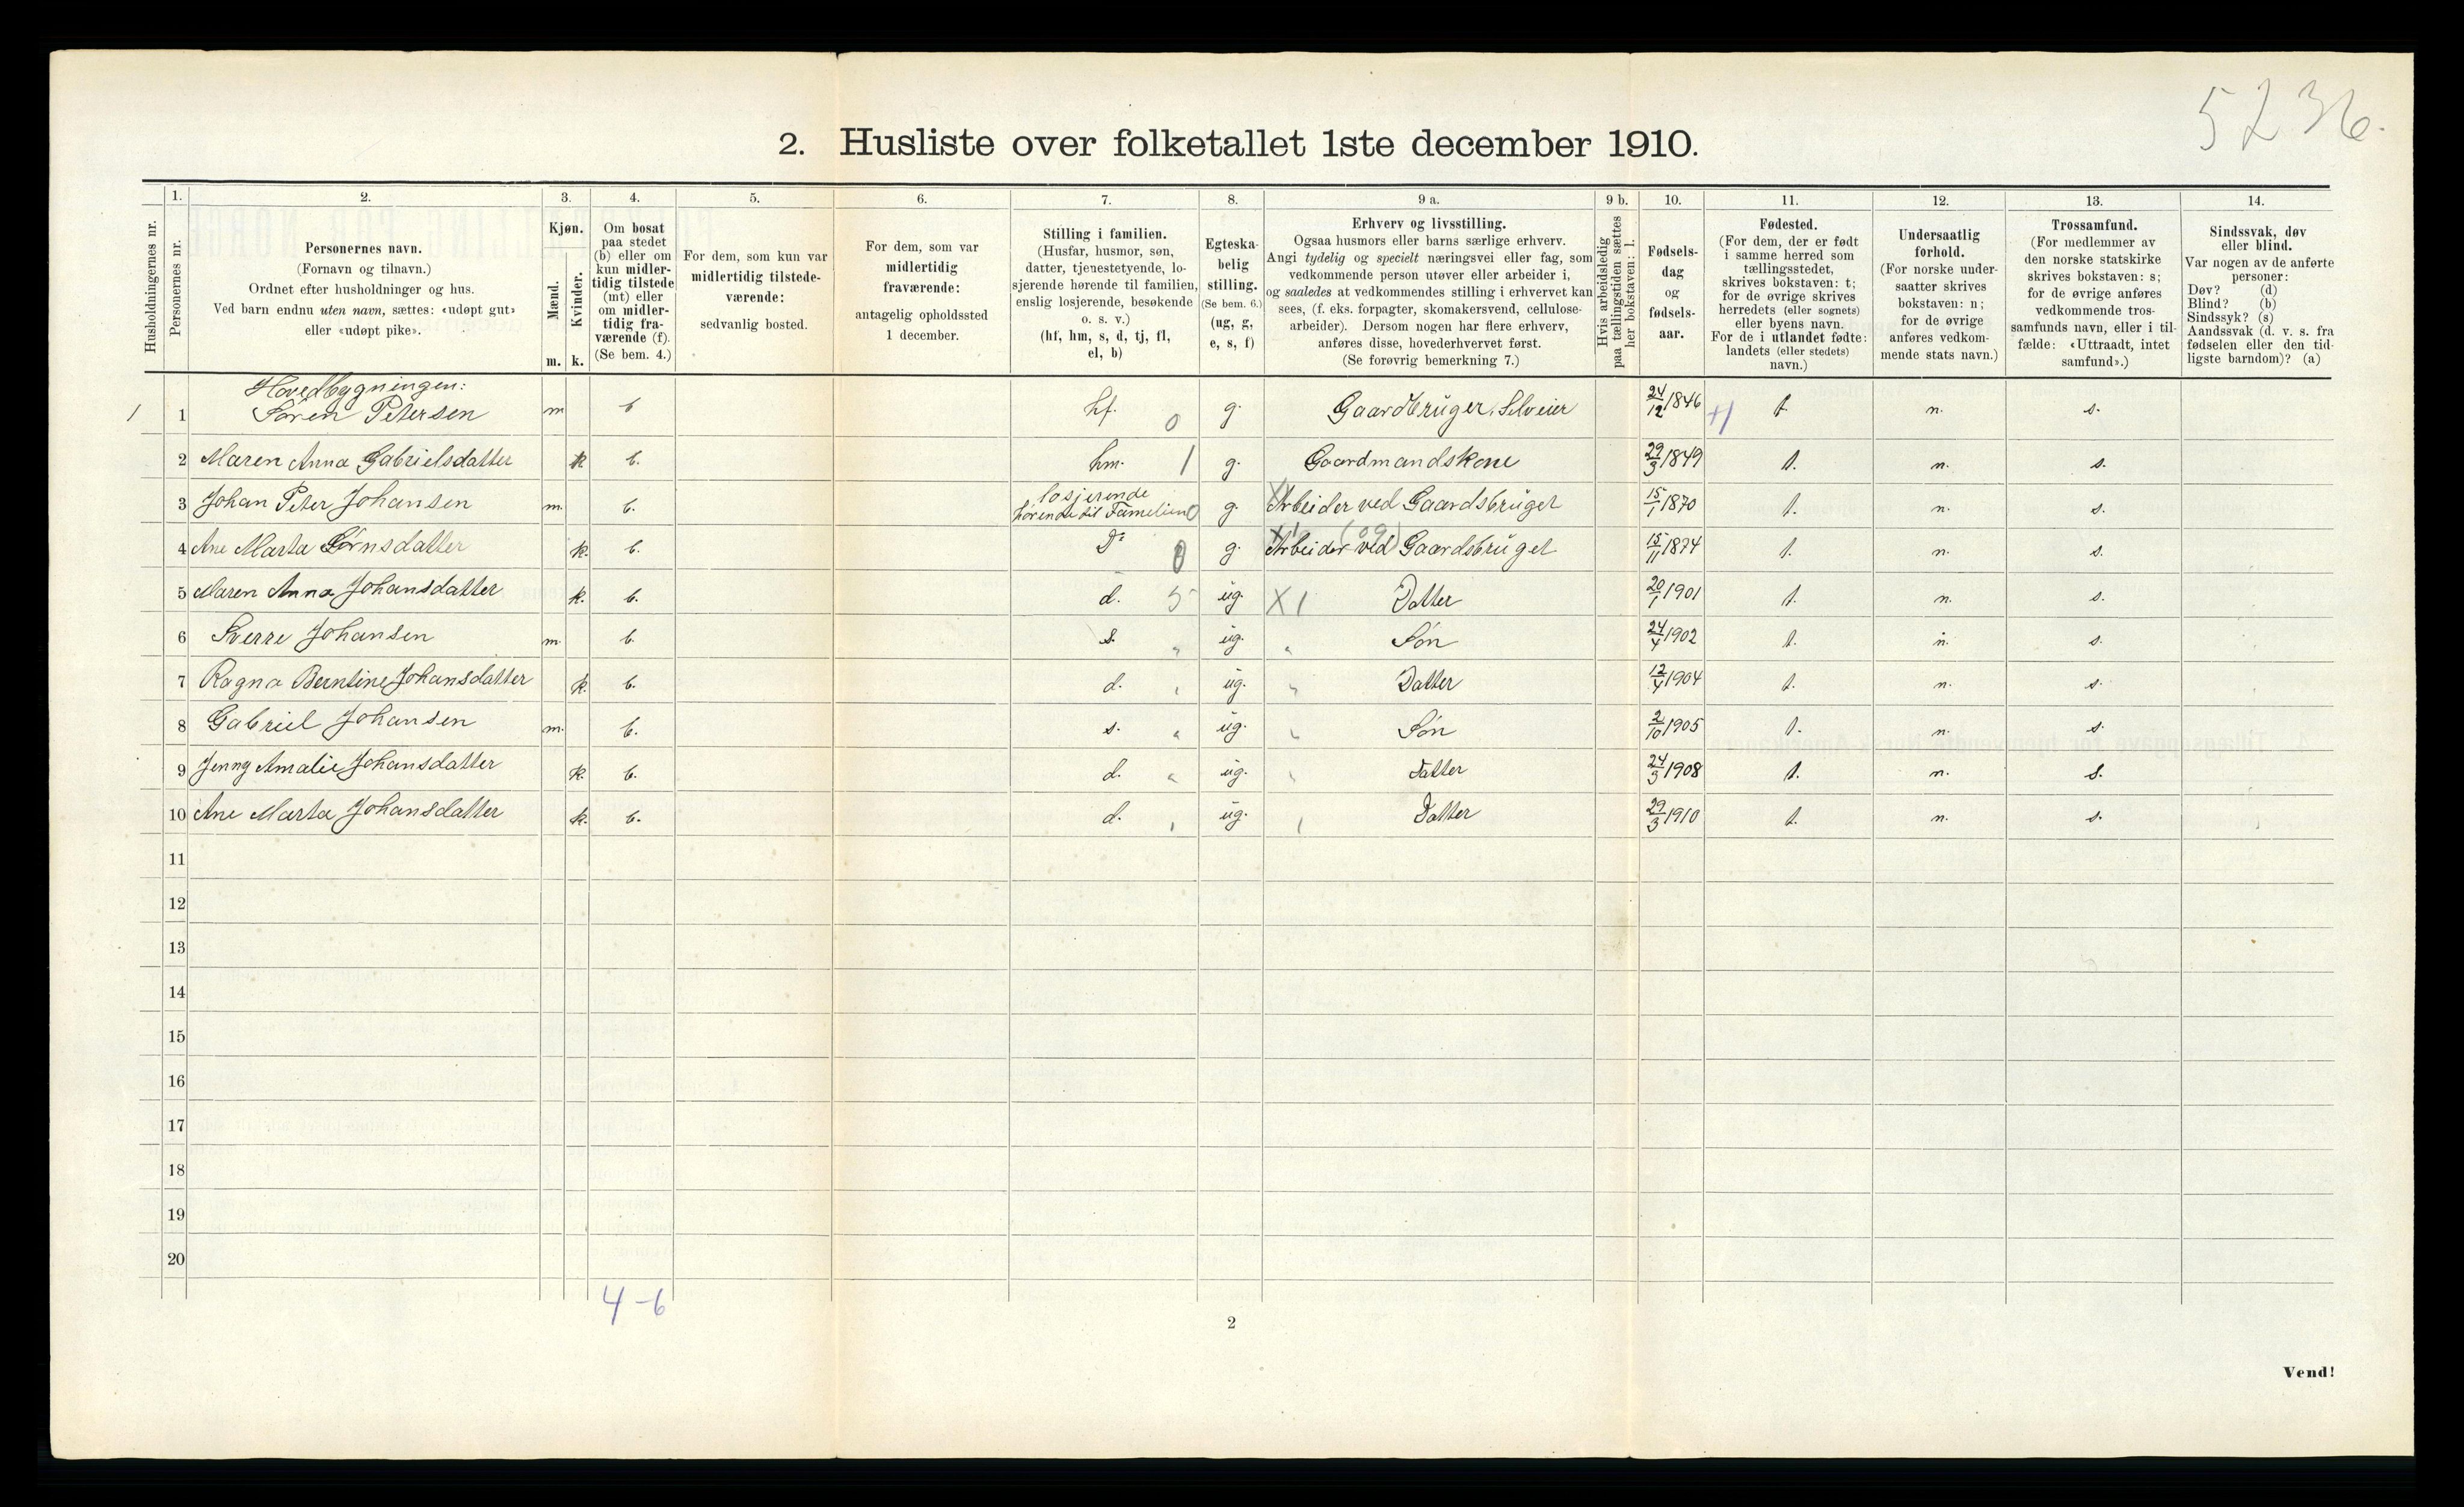 5236.
2. Husliste over folketallet 1ste december 1910.
Husholdningernes nr.
1.
Personernes nr.
2.
Personernes navn.
(Fornavn og tilnavn.)
Ordnet efter husholdninger og hus.
Ved barn endnu uten navn, sættes: «udøpt gut»
eller «udøpt pike».
3.
Kjøn.
Mænd.
Kvinder.
m. k.
4.
Om bosat
paa stedet
(b) eller om
kun midler-
tidig tilstede
(mt) eller
om midler-
tidig fra-
værende (f).
(Se bem. 4.)
5.
For dem, som kun var
midlertidig tilstede-
værende:
sedvanlig bosted.
6.
For dem, som var
midlertidig
fraværende:
antagelig opholdssted
1 december.
7.
Stilling i familien.
(Husfar, husmor, søn,
datter, tjenestetyende, lo-
sjerende hørende til familien,
enslig losjerende, besøkende
o. s. v.)
(hf, hm, s, d, tj, fl,
el, b)
8.
Egteska-
belig
stilling.
(Se bem. 6.)
(ug, g,
e, s, f)
9 a.
Erhverv og livsstilling.
Ogsaa husmors eller barns særlige erhverv.
Angi tydelig og specielt næringsvei eller fag, som
vedkommende person utøver eller arbeider i,
og saaledes at vedkommendes stilling i erhvervet kan
sees, (f. eks. forpagter, skomakersvend, cellulose-
arbeider). Dersom nogen har flere erhverv,
anføres disse, hovederhvervet først.
(Se forøvrig bemerkning 7.)
9 b.
Hvis arbeidsledig
paa tællingstiden sættes
her bokstaven: l.
10.
Fødsels-
dag
og
fødsels-
aar.
11.
Fødested.
(For dem, der er født
i samme herred som
tællingsstedet,
skrives bokstaven: t;
for de øvrige skrives
herredets (eller sognets)
eller byens navn.
For de i utlandet fødte:
landets (eller stedets)
navn.)
12.
Undersaatlig
forhold.
(For norske under-
saatter skrives
bokstaven: n;
for de øvrige
anføres vedkom-
mende stats navn.)
13.
Trossamfund.
(For medlemmer av
den norske statskirke
skrives bokstaven: s;
for de øvrige anføres
vedkommende tros-
samfunds navn, eller i til-
fælde: «Uttraadt, intet
samfund».)
14.
Sindssvak, døv
eller blind.
Var nogen av de anførte
personer:
Døv? (d)
Blind? (b)
Sindssyk? (s)
Aandssvak (d. v. s. fra
fødselen eller den tid-
ligste barndom)? (a)
Hovedbygningen:
1 1 Søren Petersen m b hf. 0 g. Gaardbruger, Selveier 24/12 1846 +1 t. n. s.
2 Maren Anna Gabrielsdatter k b. hm. 1 g. Gaardmandskone 29/3 1849 t. n. s.
losjerende
3 Johan Peter Johansen m. b. hørende til Familien 0 g. Arbeider ved Gaardsbruget 15/1 1870 t. n. s.
4 Ane Marta Sørnsdatter k. b. Do 0 g. Arbeider ved Gaardsbruget 15/11 1874 t. n. s.
5 Maren Anna Johansdatter k. b. d. 5 ug. X1 Datter 20/1 1901 t. n. s.
6 Sverre Johansen m. b. s. " ug. " Søn 24/4 1902 t. n. s.
7 Ragna Berntine Johansdatter k. b. d. " ug. " Datter 12/4 1904 t. n. s.
8 Gabriel Johansen m. b. s. " ug. " Søn 2/10 1905 t. n. s.
9 Jenny Amalie Johansdatter k. b. d. " ug. " Datter 24/3 1908 t. n. s.
10 Ane Marta Johansdatter k. b. d. " ug. " Datter 29/3 1910 t. n. s.
11
12
13
14
15
16
17
18
19
20
4-6
2
Vend!